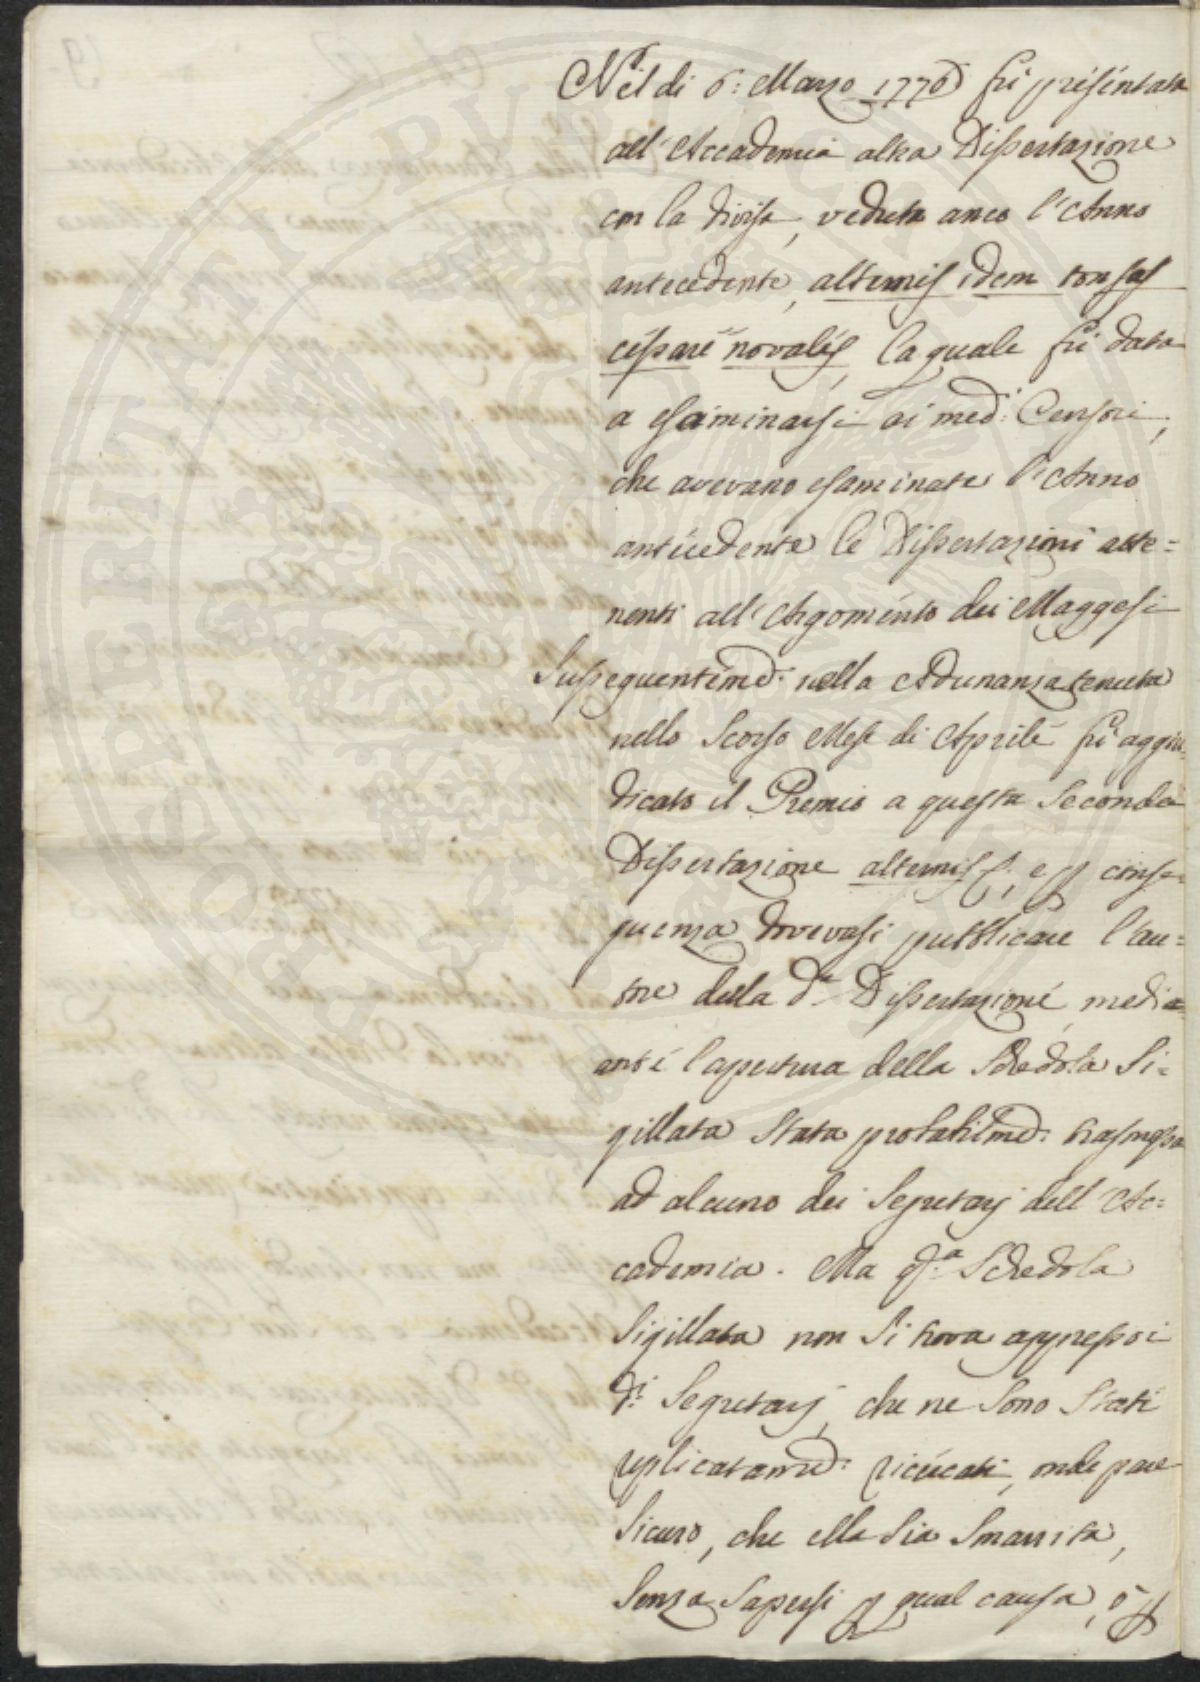 Nel di 6: Marzo 1776 fù presentata
all'Accademia altra Dissertazione
con la divisa, veduta anco l'Anno
antecedente, alternis idem tonsas
cessare novales, la quale fù data
a esaminarsi ai med: Censori,
che avevano esaminate l'Anno
antecedente le Dissertazioni atte=
nenti all'Argomento dei Maggesi
Susseguentem: nella Adunanza tenuta
nello Scorso Mese di Aprile fù aggiu=
dicato il Premio a questa Seconda
Dissertazione alternis, e p conse=
guenza dovevasi pubblicare l'au=
tore della da Dissertazione, media=
ante l'apertura della Schedola Si=
gillata Stata probabilm: trasmessa
ad alcuno dei Segretarj dell'Ac=
cademia. Ma qa Schedola
Sigillata non Si trova appresso i
di Segretarj, che ne Sono Stati
replicatam: ricercati, onde pare
Sicuro, che ella Sia Smarrita,
Senza Sapersi p qual causa, ò p
PROSPERITATI PUBLICAE AUGENDAE